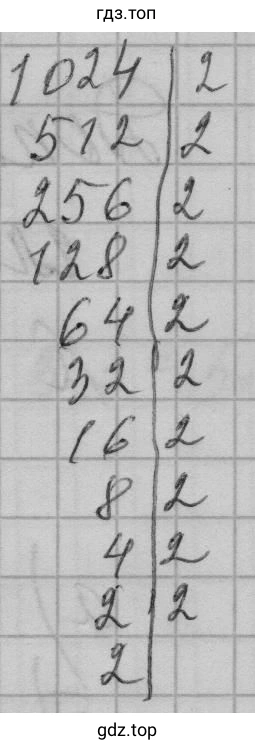 гдз.топ
1024 | 2
512 | 2
256 | 2
128 | 2
64 | 2
32 | 2
16 | 2
8 | 2
4 | 2
2 | 2
2 |
gdz.top